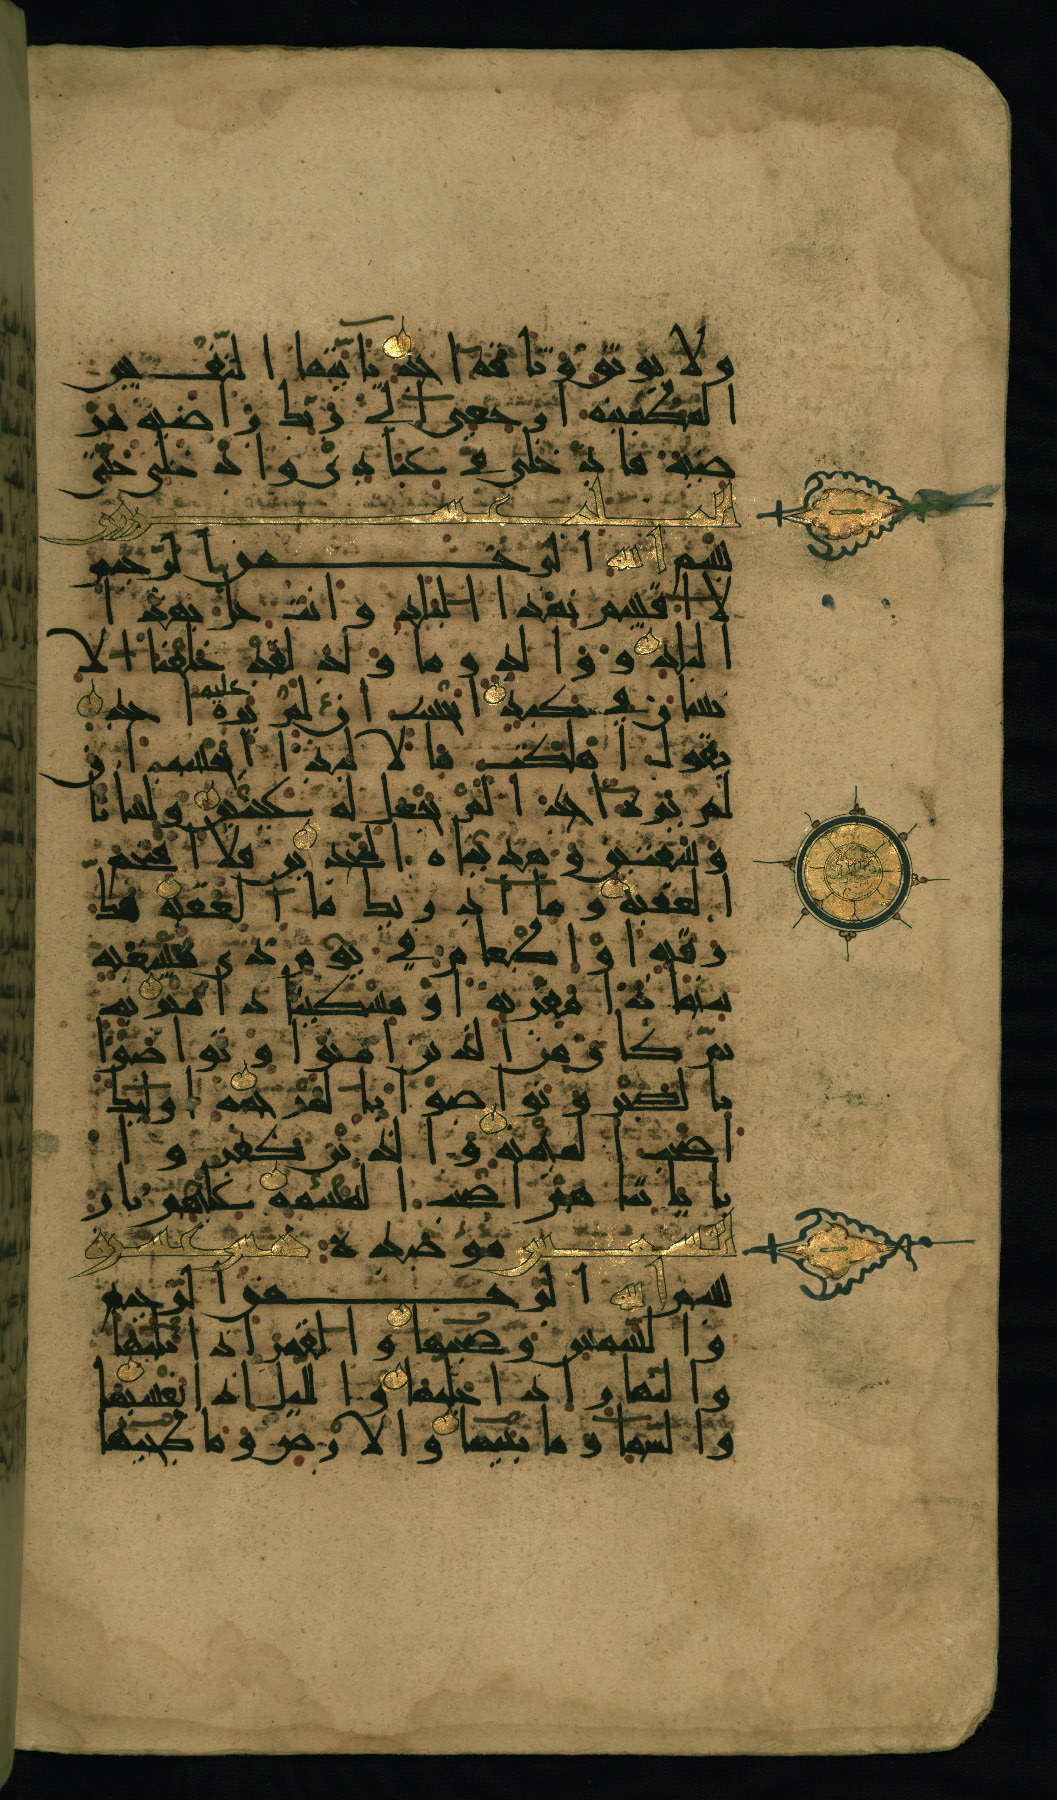 ولا يوثق وثاقه احد يا يتها النفس
المطمئنة ارجعي الى ربك راضية مر
ضية فادخلي في عبادي وادخلي جنتي
البلد عشرون
بسم الله الرحمن الرحيم
لا اقسم بهذا البلد وانت حل بهذا
البلد ووالد وما ولد لقد خلقنا الا
نسان في كبد ايحسب ان لم يره عليه احد
يقول اهلكت مالا لبدا ايحسب ان
لم يره احد الم نجعل له عينين ولسانا
وشفتين وهديناه النجدين فلا اقتحم
العقبة وما ادريك ما العقبة فك
رقبة او اطعام في يوم ذي مسغبة
يتيما ذا مقربة او مسكينا ذا متربة
ثم كان من الذين امنوا وتواصوا
بالصبر وتواصوا بالمرحمة اوليك
اصحب الميمنة والذين كفروا
باياتنا هم اصحب المشئمة عليهم نار
الشمس موصدة خمس عشرة
بسم الله الرحمن الرحيم
والشمس وضحيها والقمر اذا تليها
والنهار اذا جليها والليل اذا يغشيها
والسما وما بنيها والارض وما طحيها